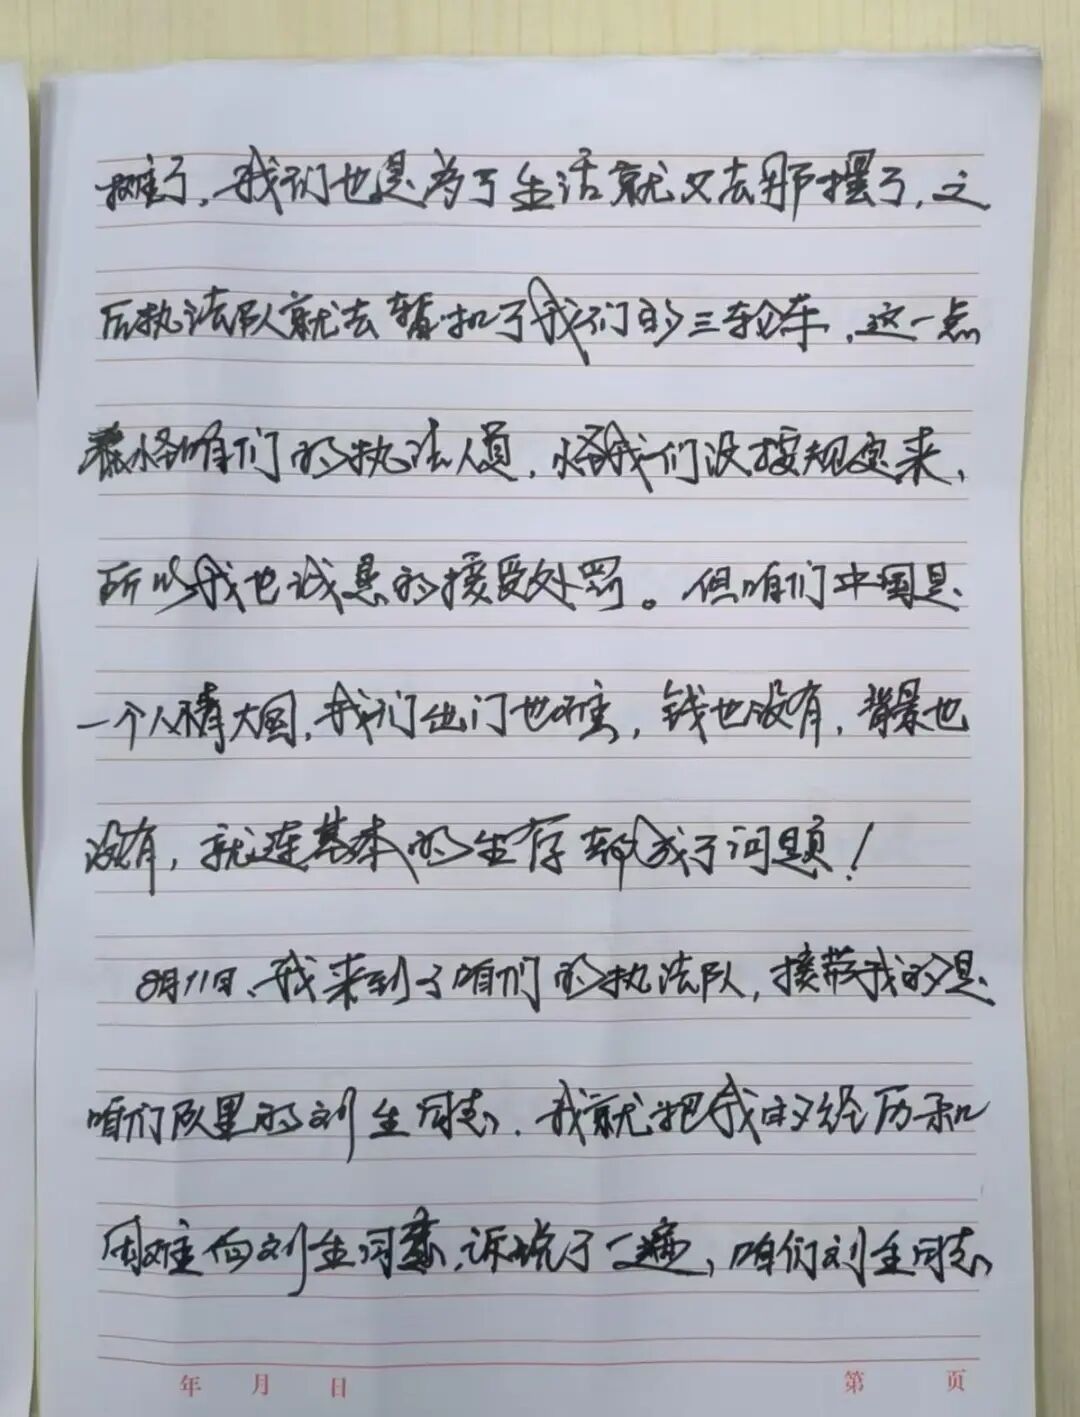 摊了，我们也是为了生活就又去那摆了，之
后执法队就去暂扣了我们的三轮车，这一点
不怪咱们的执法人员，怪我们没按规定来，
所以我也诚恳的接受处罚。但咱们中国是
一个人情大国，我们出门也难，钱也没有，背景也
没有，就连基本的生存都成了问题！
8月11日、我来到了咱们的执法队，接带我的是
咱们队里的刘生同志，我就把我的经历和
困难向刘生同志，诉说了一遍，咱们刘生同志
年 月 日 第 页